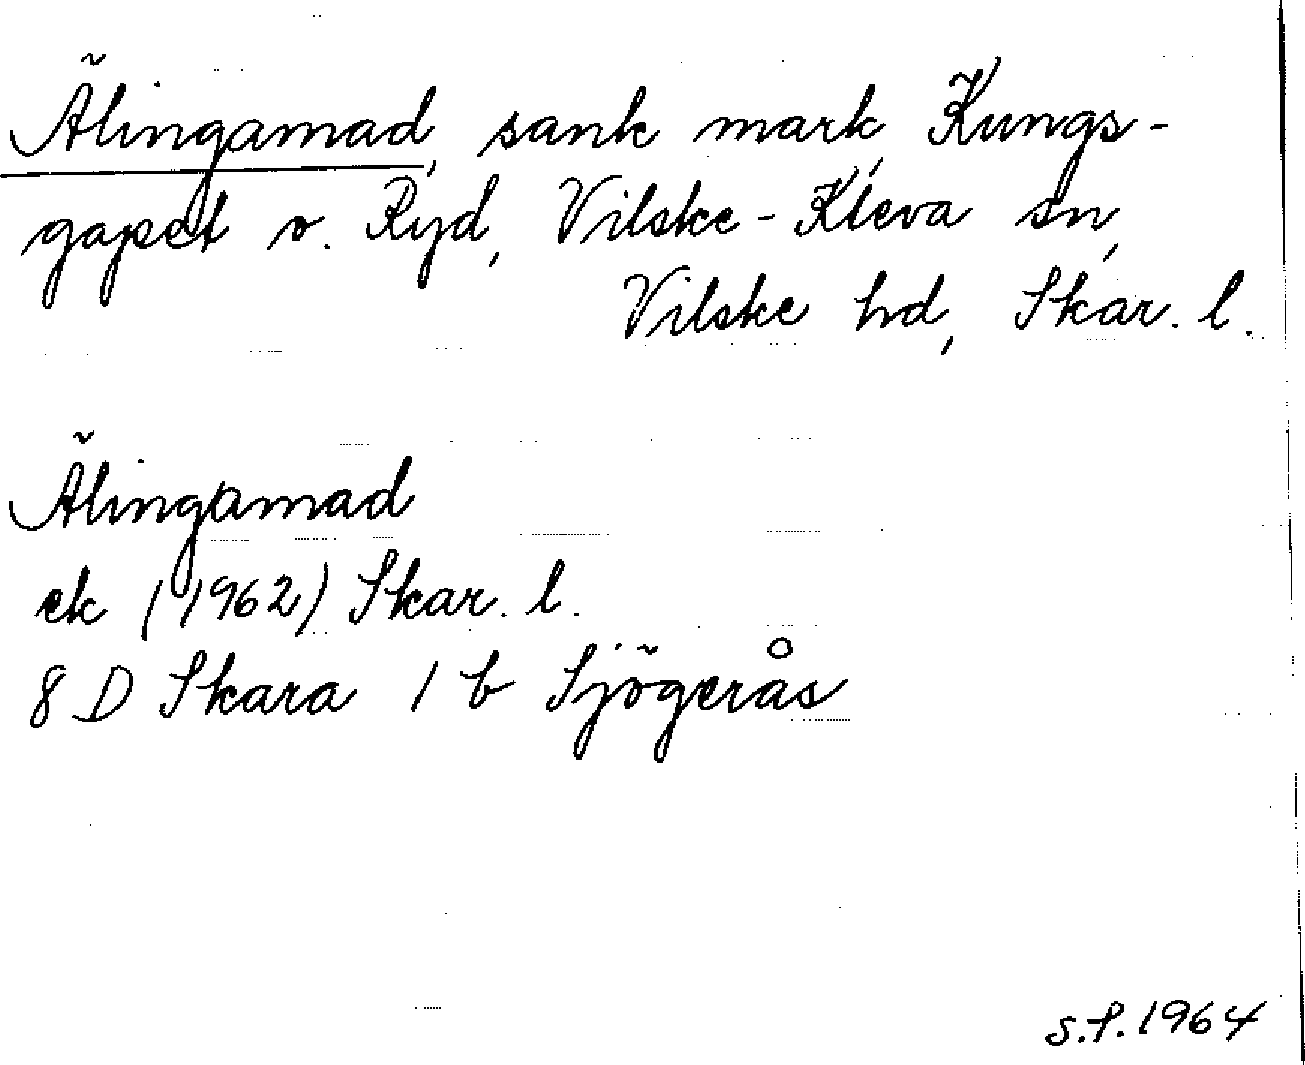 Älingamad, sank mark, Kungs-
gapet v. Ryd, Vilske-Kleva sn,
Vilske hd, Skar. l.
Älingamad
ek (1962) Skar. l.
8 D Skara 1 b Sjögerås
S.S. 1964